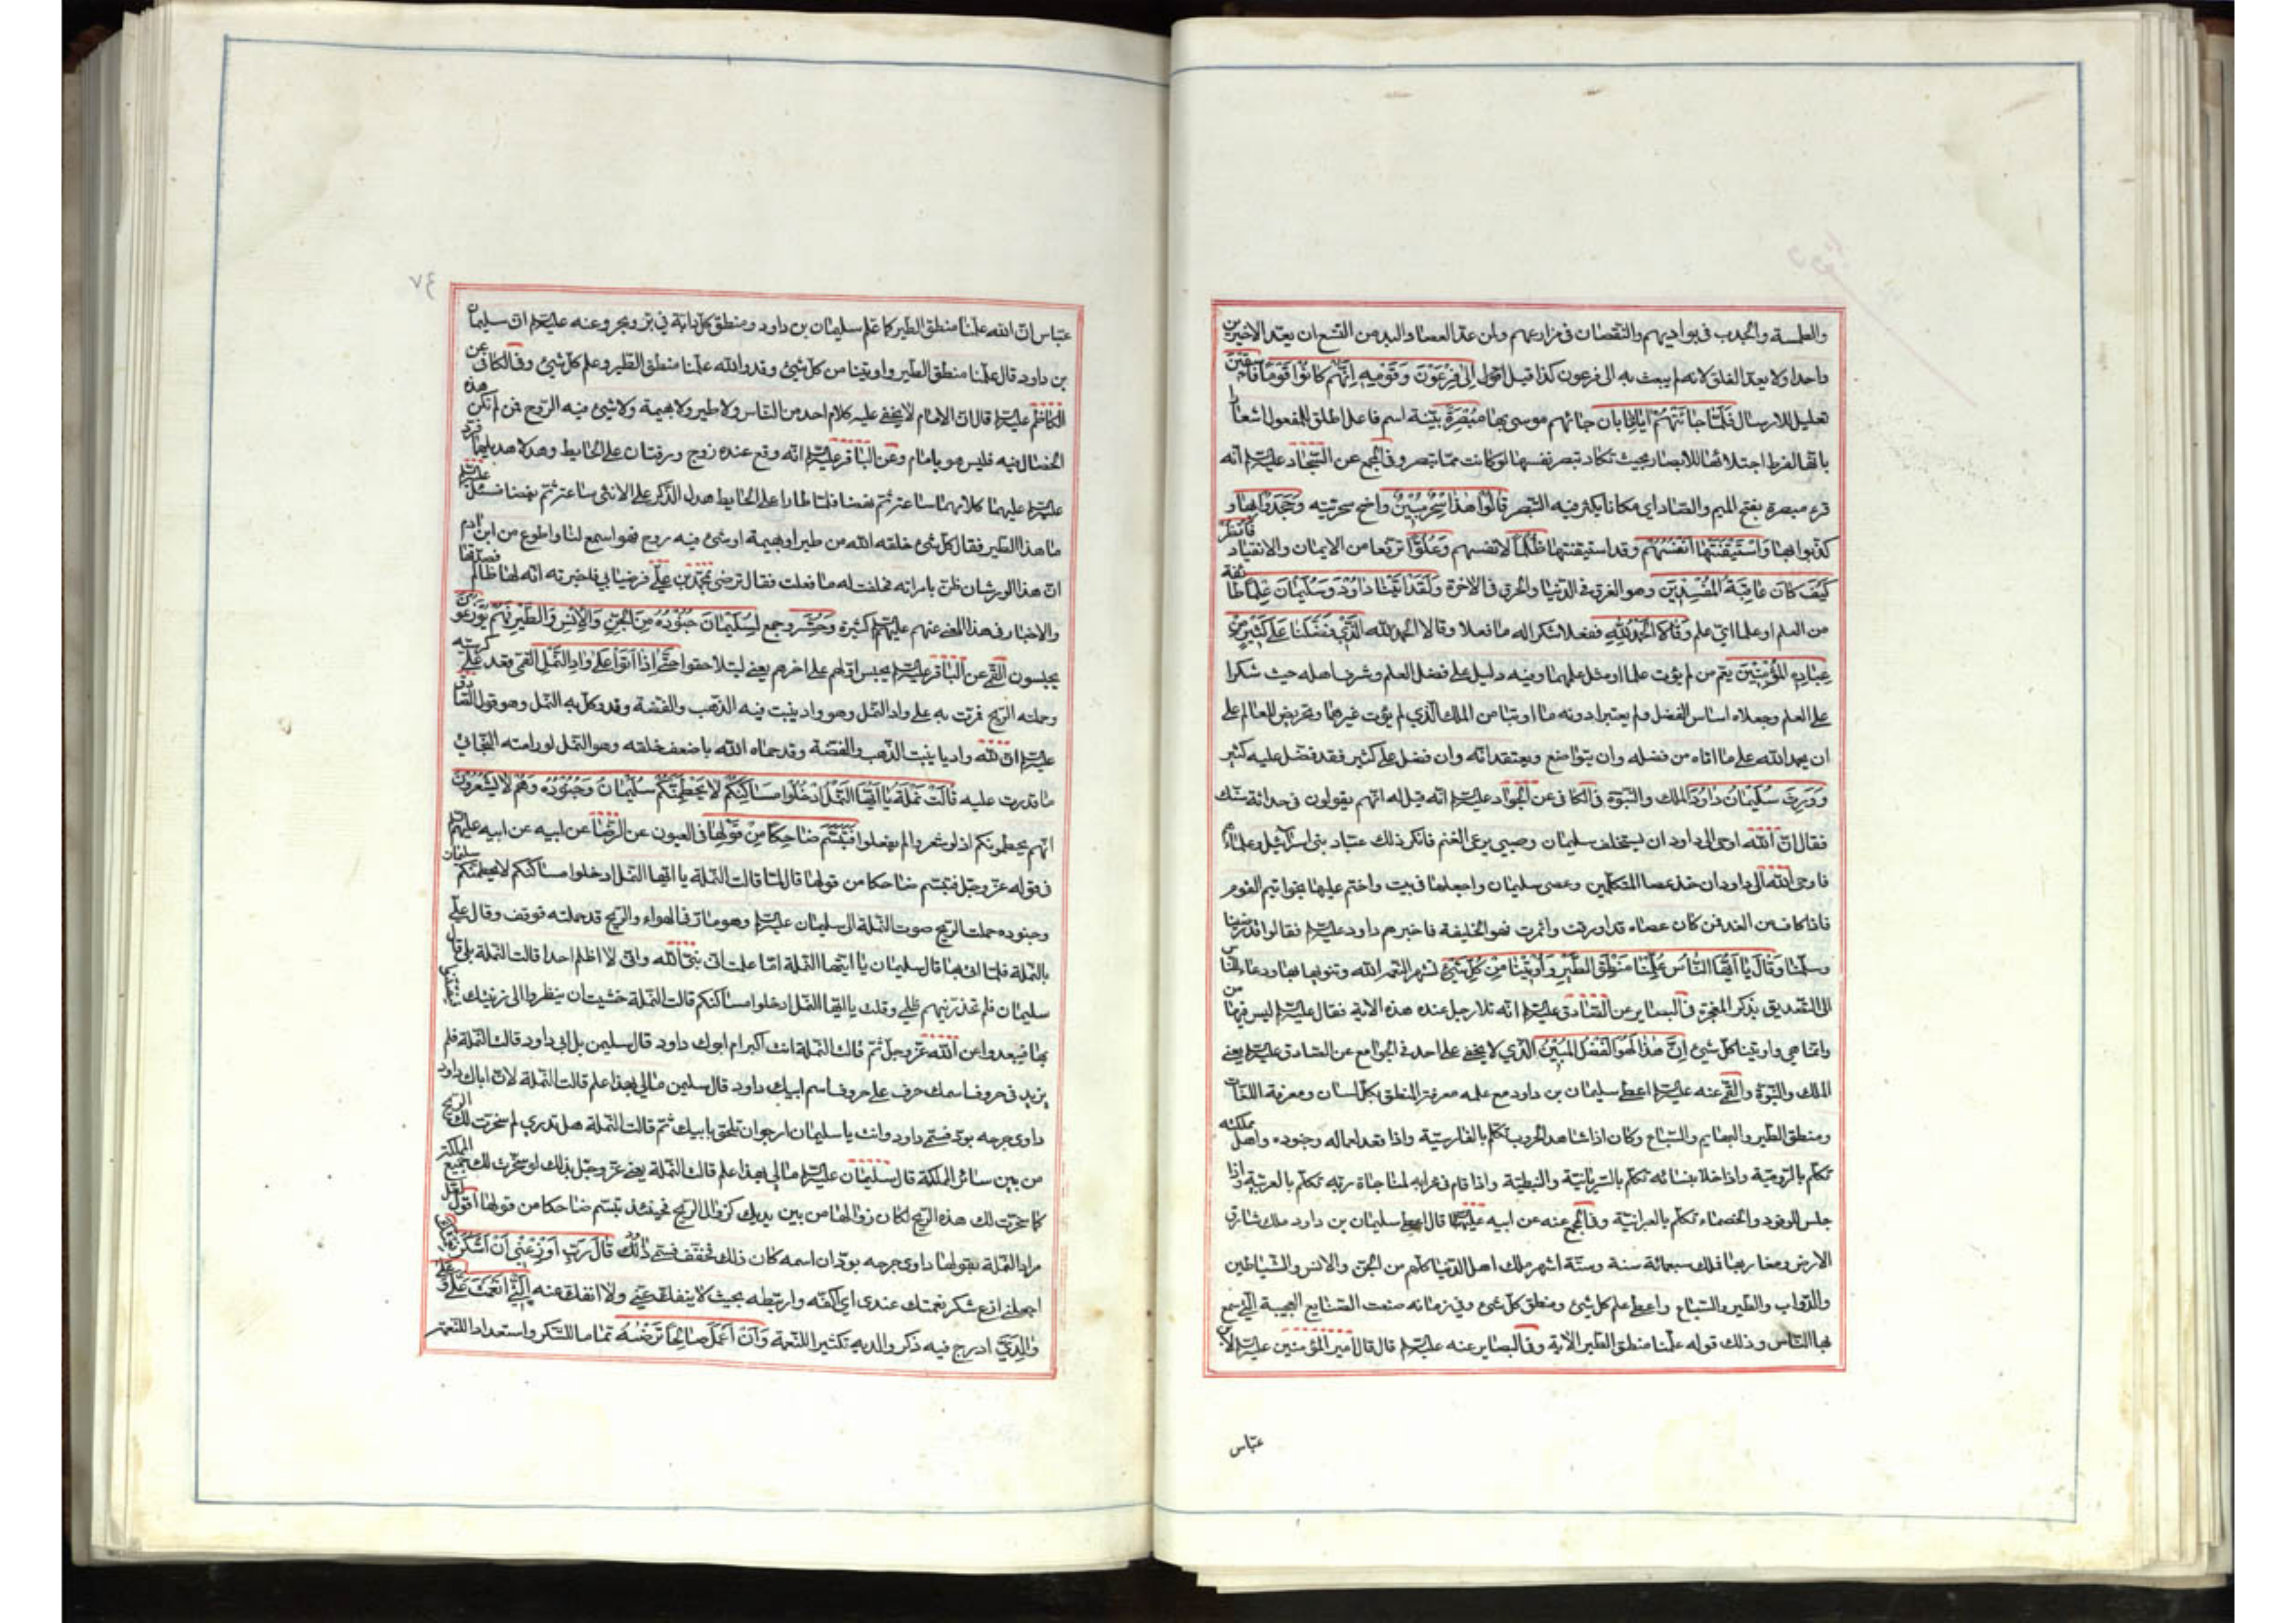 والطمسة والجدب في بواديهم والنقصان في مزارعهم ولمن عد العصا واليد من التسع ان يعد الاخيرين
واحدا ولا يعد الفلق لانه لم يبعث به الى فرعون كذا قيل اقول إِلى فِرْعَوْنَ وَقَوْمِهِ إِنَّهُمْ كانُوا قَوْماً فاسِقِينَ
تعليل للارسال فَلَمَّا جاءَتْهُمْ آياتُنا بان جائهم موسى بها مُبْصِرَةً بيّنة اسم فاعل اطلق للمفعول اشعارا
بانها لفرط اجتلائها للابصار بحيث تكاد تبصر نفسها لو كانت مما تبصر وفي المجمع عن السجّاد عليه السلام انه
قرء مبصرة بفتح الميم والصاد اي مكانا يكثر فيه التبصر قالُوا هذا سِحْرٌ مُبِينٌ واضح سحريته وَجَحَدُوا بِها و
كذبوا بها وَاسْتَيْقَنَتْها أَنْفُسُهُمْ وقد استيقنتها ظُلْماً لانفسهم وَعُلُوًّا ترفعا من الايمان والانقياد فَانْظُرْ
كَيْفَ كانَ عاقِبَةُ الْمُفْسِدِينَ وهو الغرق في الدنيا والحرق في الاخرة وَلَقَدْ آتَيْنا داوُدَ وَسُلَيْمانَ عِلْماً طائفة
من العلم او علما اي علم وَقالا الْحَمْدُ لِلَّهِ ففعلا شكرا له ما فعلا وقالا الحمد لله الَّذِي فَضَّلَنا عَلى كَثِيرٍ مِنْ
عِبادِهِ الْمُؤْمِنِينَ يعم من لم يؤت علما او مثل علمهما وفيه دليل على فضل العلم وشرف اهله حيث شكرا
على العلم وجعلاه اساس الفضل ولم يعتبرا دونه ما اوتيا من الملك الذي لم يؤت غيرهما وتحريض للعالم على
ان يحمد الله على ما اتاه من فضله وان يتواضع ويعتقد انه وان فضل على كثير فقد فضل عليه كثير
وَوَرِثَ سُلَيْمانُ داوُدَ الملك والنبوة في الكافي عن الجواد عليه السلام انه قيل له انهم يقولون في حداثة سنك
فقال ان الله اوحى الى داود ان يستخلف سليمان وهو صبي يرعى الغنم فانكر ذلك عباد بني اسرائيل وعلماؤهم
فاوحى الله الى داود ان خذ عصا المتكلمين وعصى سليمان واجعلها في بيت واختم عليها بخواتيم القوم
فاذا كان من الغد فمن كان عصاه قد اورقت واثمرت فهو الخليفة فاخبرهم داود عليه السلام فقالوا قد رضينا
وسلمنا وَقالَ يا أَيُّهَا النَّاسُ عُلِّمْنا مَنْطِقَ الطَّيْرِ وَأُوتِينا مِنْ كُلِّ شَيْءٍ تشهيرا لنعمة الله وتنويها بها ودعاء للناس
الى التصديق بذكر المعجزة في البصاير عن الصادق عليه السلام انه تلا رجل عنده هذه الاية فقال عليه السلام ليس فيها من
وانما هي واوتينا كل شيئ إِنَّ هذا لَهُوَ الْفَضْلُ الْمُبِينُ الذي لا يخفى على احد في الجوامع عن الصادق عليه السلام يعني
الملك والنبوة والقمي عنه عليه السلام اعطي سليمان بن داود مع علمه معرفة المنطق بكل لسان ومعرفة اللغات
ومنطق الطير والبهايم والسباع وكان اذا شاهد الحروب تكلم بالفارسية واذا قعد لعماله وجنوده واهل مملكته
تكلم بالرومية واذا خلا بنسائه تكلم بالسريانية والنبطية واذا قام في محرابه لمناجاة ربه تكلم بالعربية واذا
جلس للوفود والخصماء تكلم بالعبرانية وفي المجمع عنه عن ابيه عليهما السلام قال اعطي سليمان بن داود ملك مشارق
الارض ومغاربها فملك سبعمائة سنة وستة اشهر ملك اهل الدنيا كلهم من الجن والانس والشياطين
والدواب والطير والسباع واعطي علم كل شيئ ومنطق كل شيئ وفي زمانه صنعت الصنايع العجيبة التي سمع
بها الناس وذلك قوله علّمنا منطق الطير الاية وفي البصاير عنه عليه السلام قال قال امير المؤمنين عليه السلام لابن
عبّاس
٧٤
عبّاس ان الله علّمنا منطق الطير كما علم سليمان بن داود ومنطق كل دابة في بر وبحر وعنه عليه السلام ان سليمان
بن داود قال علّمنا منطق الطير واوتينا من كل شيئ وقد والله علّمنا منطق الطير وعلم كل شيئ وفي الكافي عن
الكاظم عليه السلام قال ان الامام لا يخفى عليه كلام احد من الناس ولا طير ولا بهيمة ولا شيئ فيه الروح فمن لم تكن هذه
الخصال فيه فليس هو بامام وعن الباقر عليه السلام انه وقع عنده زوج ورشان على الحايط وهدلا هديلهما فرد
عليه السلام عليهما كلامهما ساعة ثم نهضا فلما طارا على الحايط هدل الذكر على الانثى ساعة ثم نهضا فسئل عليه السلام
ما هذا الطير فقال كل شيئ خلقه الله من طير او بهيمة او شيئ فيه روح فهو اسمع لنا واطوع من ابن ادم
ان هذا الورشان ظن بامراته فحلفت له ما فعلت فقال ترضى بمحمد بن علي فرضيا بي فاخبرته انه لها ظالم فصدقها
والاخبار في هذا المعنى عنهم عليهم السلام كثيرة وَحُشِرَ وجمع لِسُلَيْمانَ جُنُودُهُ مِنَ الْجِنِّ وَالْإِنْسِ وَالطَّيْرِ فَهُمْ يُوزَعُونَ
يحبسون القمي عن الباقر عليه السلام يحبس اولهم على اخرهم يعني ليتلاحقوا حَتَّى إِذا أَتَوْا عَلى وادِ النَّمْلِ القمي قعد على كرسيه
وحملته الريح فمرت به على واد النمل وهو واد ينبت فيه الذهب والفضة وقد وكل به النمل وهو قول الصادق
عليه السلام ان لله واديا ينبت الذهب والفضة وقد حماه الله باضعف خلقه وهو النمل لو رامته البخاتي
ما قدرت عليه قالَتْ نَمْلَةٌ يا أَيُّهَا النَّمْلُ ادْخُلُوا مَساكِنَكُمْ لا يَحْطِمَنَّكُمْ سُلَيْمانُ وَجُنُودُهُ وَهُمْ لا يَشْعُرُونَ
انهم يحطمونكم اذ لو شعروا لم يفعلوا فَتَبَسَّمَ ضاحِكاً مِنْ قَوْلِها في العيون عن الرضا عن ابيه عن ابيه عليهم السلام
في قوله عز وجل فتبسم ضاحكا من قولها قال لما قالت النملة يا ايها النمل ادخلوا مساكنكم لا يحطمنكم سليمان
وجنوده حملت الريح صوت النملة الى سليمان عليه السلام وهو مار في الهواء والريح قد حملته فوقف وقال علي
بالنملة فلما اتي بها قال سليمان يا ايتها النملة اما علمت اني نبي الله واني لا اظلم احدا قالت النملة بلى قال
سليمان فلم تحذرينهم ظلمي وقلت يا ايها النمل ادخلوا مساكنكم قالت النملة خشيت ان ينظروا الى زينتك
بها فيبعدوا عن الله عز وجل ثم قالت النملة انت اكبر ام ابوك داود قال سليمن بل ابي داود قالت النملة فلم
يزيد في حروف اسمك حرف على حروف اسم ابيك داود قال سليمن ما لي بهذا علم قالت النملة لان اباك داود
داوى جرحه بود فسمّي داود وانت يا سليمان ارجو ان تلحق بابيك ثم قالت النملة هل تدري لم سخرت لك الريح
من بين سائر المملكة قال سليمان عليه السلام ما لي بهذا علم قالت النملة يعني عز وجل بذلك لو سخرت لك جميع المملكة
كما سخرت لك هذه الريح لكان زوالها من بين يديك كزوال الريح فحينئذ تبسم ضاحكا من قولها اقول لعل
مراد النملة بقولها داوى جرحه بود ان اسمه كان ذلك فخفف فسمّي داود قالَ رَبِّ أَوْزِعْنِي أَنْ أَشْكُرَ نِعْمَتَكَ
اجعلني ازع شكر نعمتك عندي اي اكفه وارتبطه بحيث لا ينفلت عني ولا انفك عنه الَّتِي أَنْعَمْتَ عَلَيَّ وَعَلى
والِدَيَّ ادرج فيه ذكر والديه تكثيرا للنعمة وَأَنْ أَعْمَلَ صالِحاً تَرْضاهُ تماما للشكر واستعدادا للنعمة